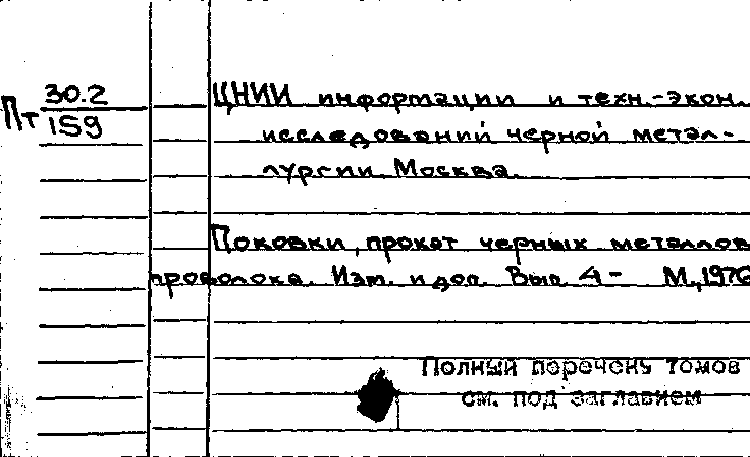 Пт 30.2
159
ЦНИИ информации и техн.-экон.
исследований черной метал-
лургии. Москва.
Поковки, прокат черных металлов
проволока. Изм. и доп. Вып. 4- М., 1976
Полный перечень томов
см. под заглавием